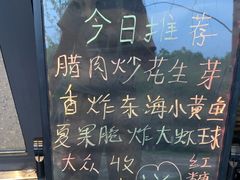 今日推荐
腊肉炒花生芽
香炸东海小黄鱼
夏果脆炸大虾球
大众 收 红
糖